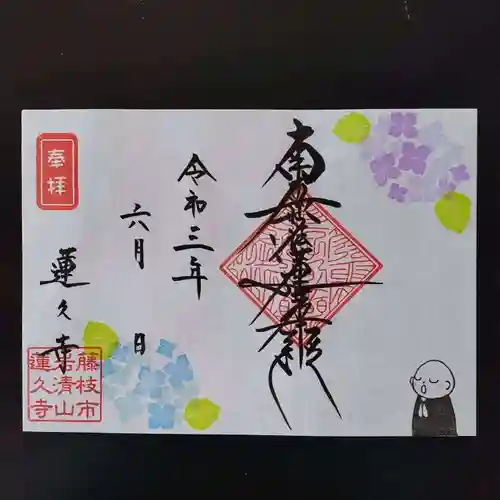 南無妙法蓮華経
令和三年
六月 日
奉拝
蓮久寺
藤枝市
岩清山
蓮久寺